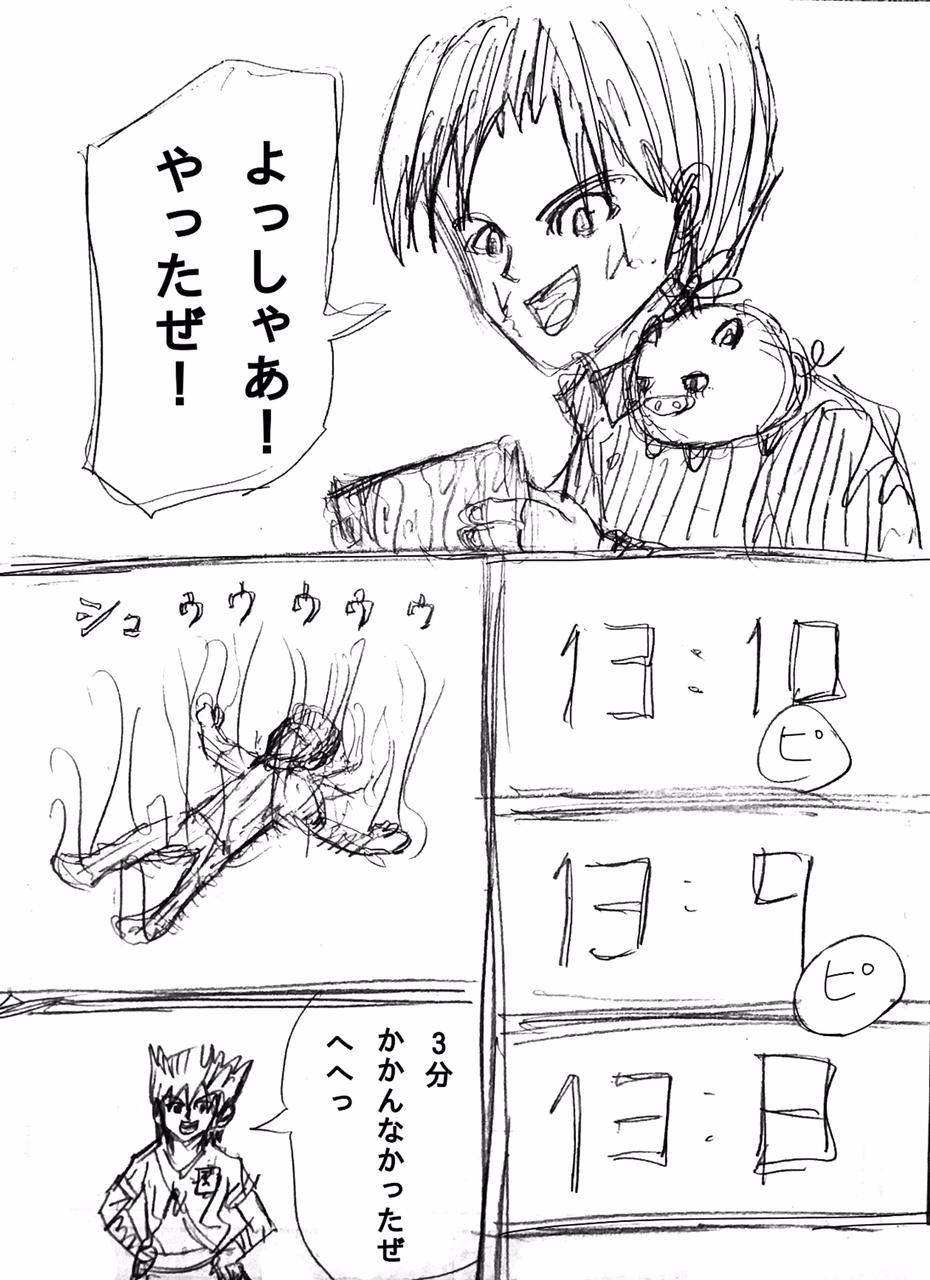 よっしゃあ！
やったぜ！
13:10
ピ
13:9
ピ
13:8
シュゥゥゥゥゥ
3分
かかんなかったぜ
へへっ